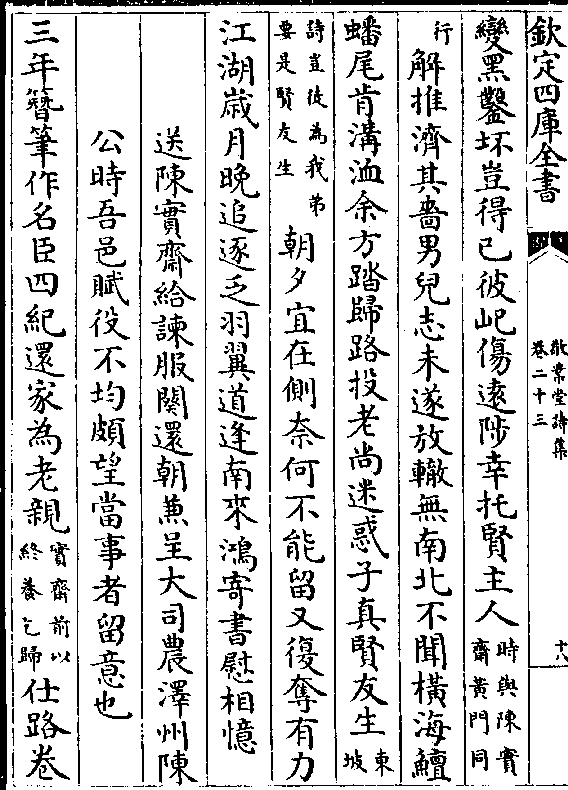 欽定四庫全書
敬業堂詩集
卷二十三
十八
變黑鑿坏豈得已彼屺傷遠陟幸托賢主人時與陳實齋黃門同
行解推濟其嗇男兒志未遂放轍無南北不聞橫海鱣
蟠尾肯溝洫余方踏歸路投老尚迷惑子真賢友生東坡
詩豈徒為我弟要是賢友生朝夕宜在側奈何不能留又復奪有力
江湖歲月晚追逐乏羽翼道逢南來鴻寄書慰相憶
送陳實齋給諫服闋還朝兼呈大司農澤州陳
公時吾邑賦役不均頗望當事者留意也
三年簪筆作名臣四紀還家為老親實齋前以終養乞歸仕路卷